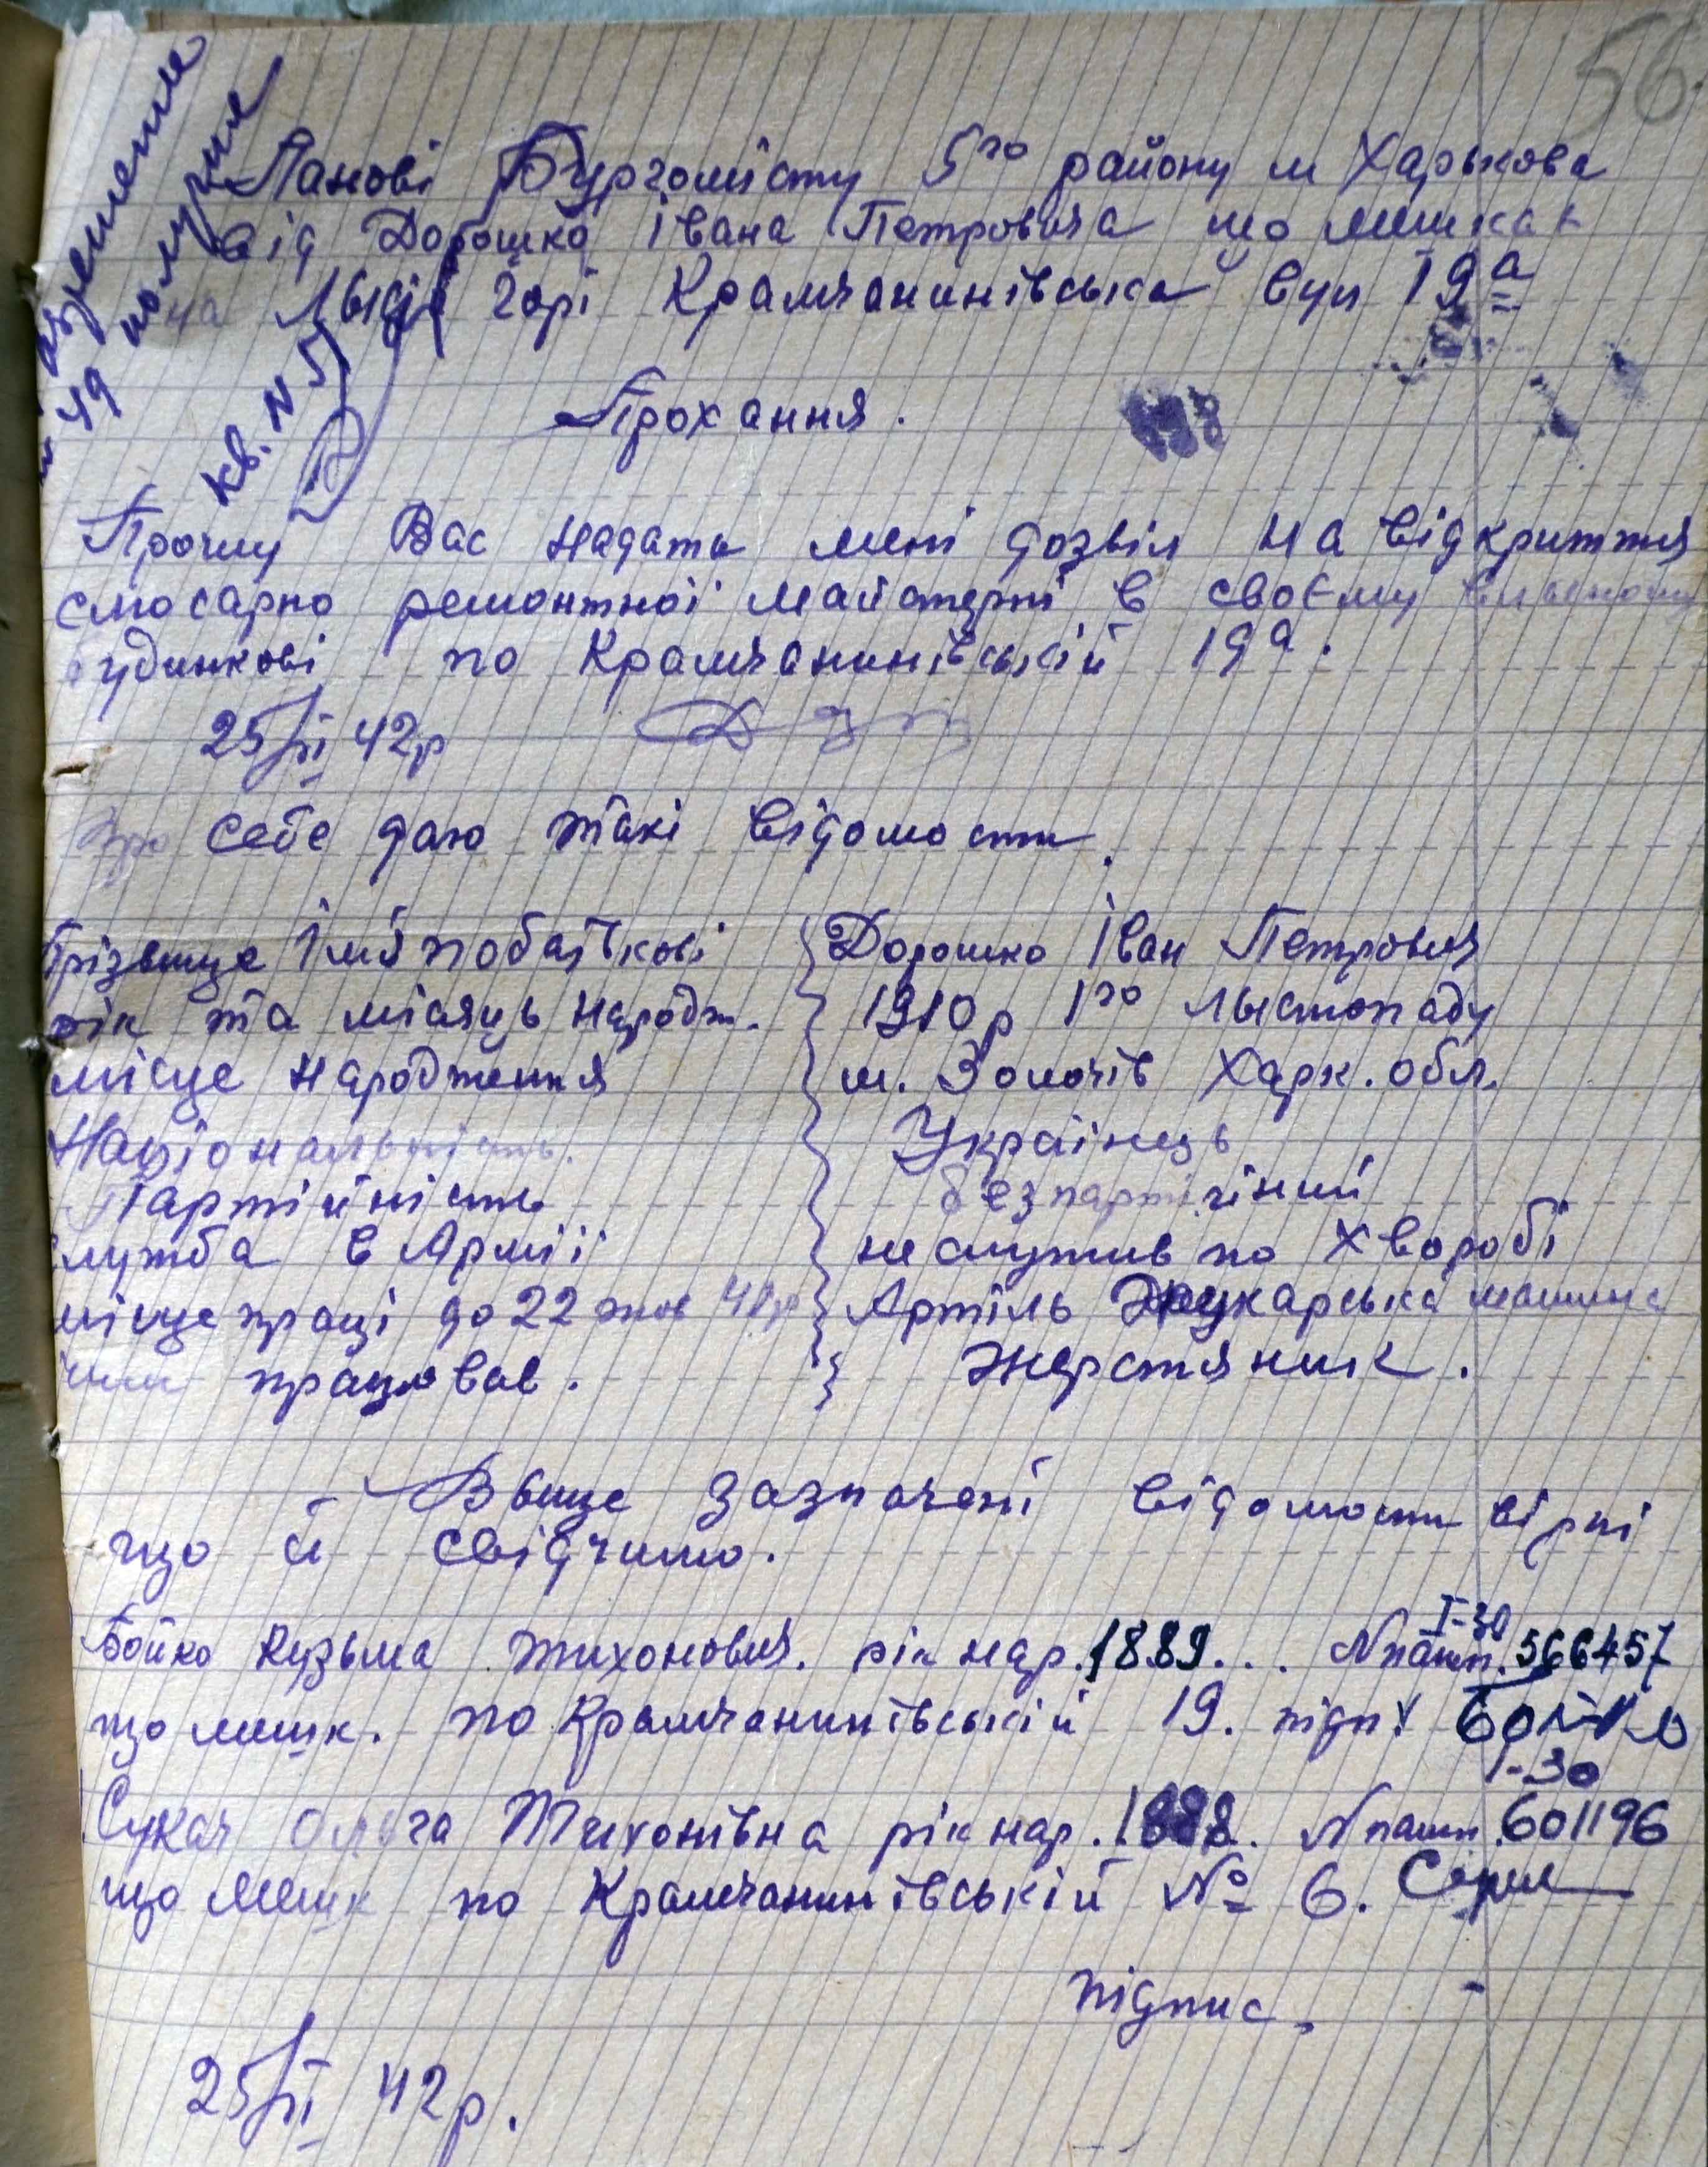 56
разрешение
№ 49 получил
кв. N 5
Панові Бургомісту 5го району м Харькова
від Дорошко Івана Петровича що мешкає
на Лысій Горі Крамчанинівська вул 19а
Прохання.
Прошу Вас надати мені дозвіл на відкриття
слюсарно ремонтної майстерні в своєму власному
будинкові по Крамчанинівській 19а.
25/III 42р
Про себе даю такі відомости.
Прізвище Імя побатькові } Дорошко Іван Петрович
рік та місяць народж. } 1910р 1го лыстопаду
місце народження } м. Золочів Харк. обл.
Національність. } Українець
Партійність } безпартійний
служба в Армії } не служив по хворобі
місце праці до 22 жов 41р } Артіль Друкарська машина
чим працював. } Жерстяник.
Выще зазначені відомости вірні
що й свідчимо.
Бойко Кузьма Тихонович. рік нар. 1889... N пашп. I-30 566457
що мешк. по Крамчанинівській 19. підп. Бойко
Сукач Ольга Тихонівна рік нар. 1888. N пашп. I-30 601196
що мешк по Крамчанинівській № 6.
підпис.
25/III 42р.